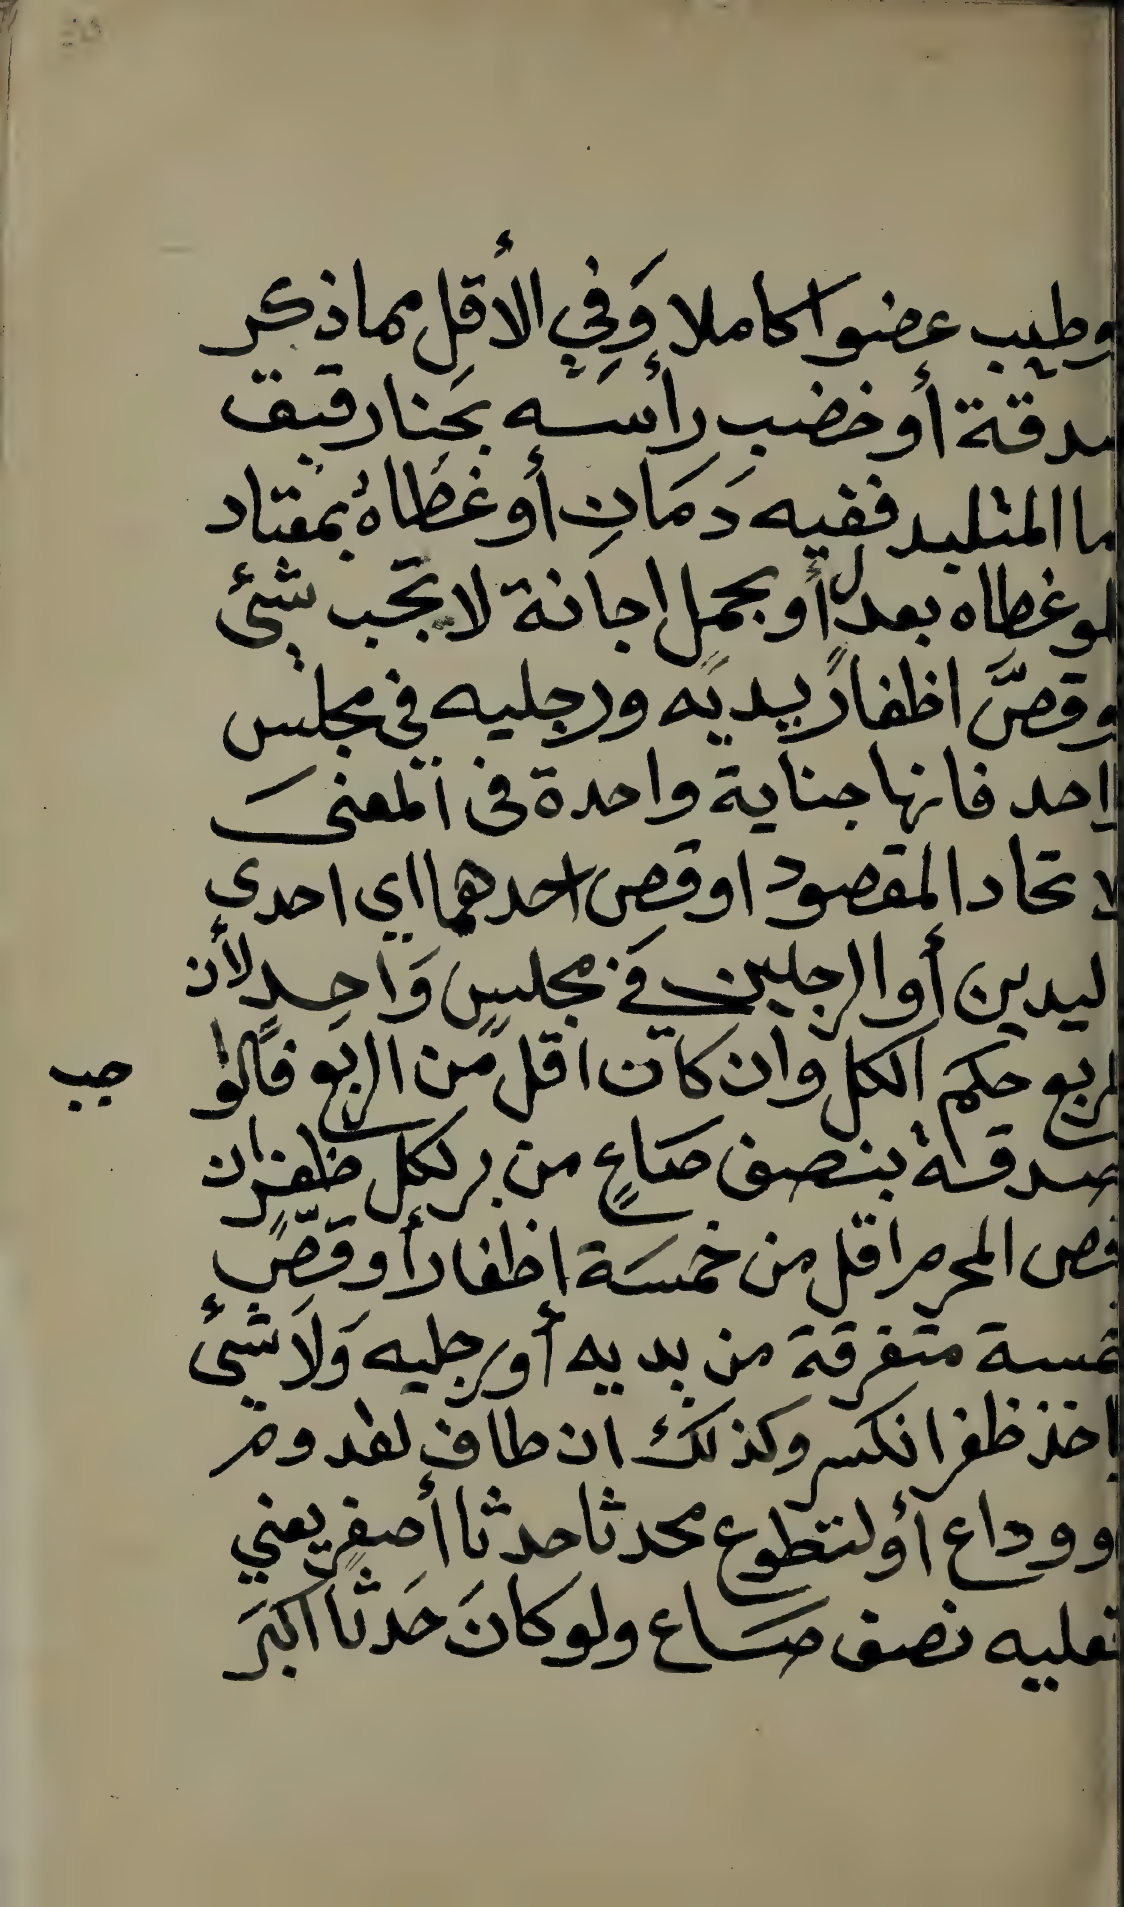 وطيب عضوا كاملا وَفِي الأقل مما ذكر
صدقة أو خضب رأسه بحنا رقيق
ما المتلبد ففيه دَمَانِ أو غطاهُ بمعتاد
لو غطاه بعدل أو بحمل اجانة لا تجب شئ
وقصَّ اظفارَ يديه ورجليه في مجلس
واحد فانها جناية واحدة في المعنى
لا تحاد المقصود او قص احدهما اي احدى
ليدين أو الرجلين في مجلسٍ وَاحِدٍ لأن
لربع حكم الكل وان كان اقل من الربع فالوا جب
صدقة بنصف صَاعٍ من بر لكل ظفر ان
قص المحرم اقل من خمسَة اظفار أو قصّ
خمسة متفرقة من يديه أو رجليه وَلَا شئ
باخذ ظفر انكسر وكذلك ان طاف لقدوم
او وداع أو لتطوع محدثا حدثا أصغر يعني
فعليه نصف صَاع ولو كانَ حَدثا اكبَرَ